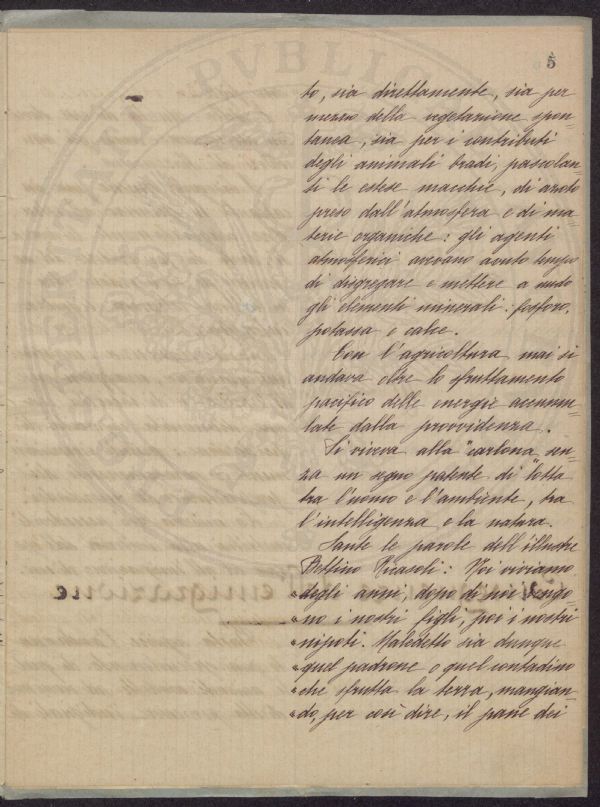 5
to, sia direttamente, sia per
mezzo della vegetazione spon-
tanea, sia per i contributi
degli animali bradi, pascolan-
ti le estese macchie, di azoto
preso dall'atmosfera e di ma-
terie organiche: gli agenti
atmosferici avevano avuto tempo
di disgregare e mettere a nudo
gli elementi minerali: fosforo,
potassa e calce.
Con l'agricoltura mai si
andava oltre lo sfruttamento
pacifico delle energie accumu-
late dalla provvidenza.
Si viveva alla "cartona, sen-
za un segno patente di "lotta
tra l'uomo e l'ambiente, tra
l'intelligenza e la natura.
Sante le parole dell'illustre
Bettino Ricasoli: Noi viviamo
"degli anni; dopo di noi vengo-
"no i nostri figli, poi i nostri
"nipoti. Maledetto sia dunque
"quel padrone e quel contadino
"che sfrutta la terra, mangian-
"do, per così dire, il pane dei
PVBLIC
emigrazione